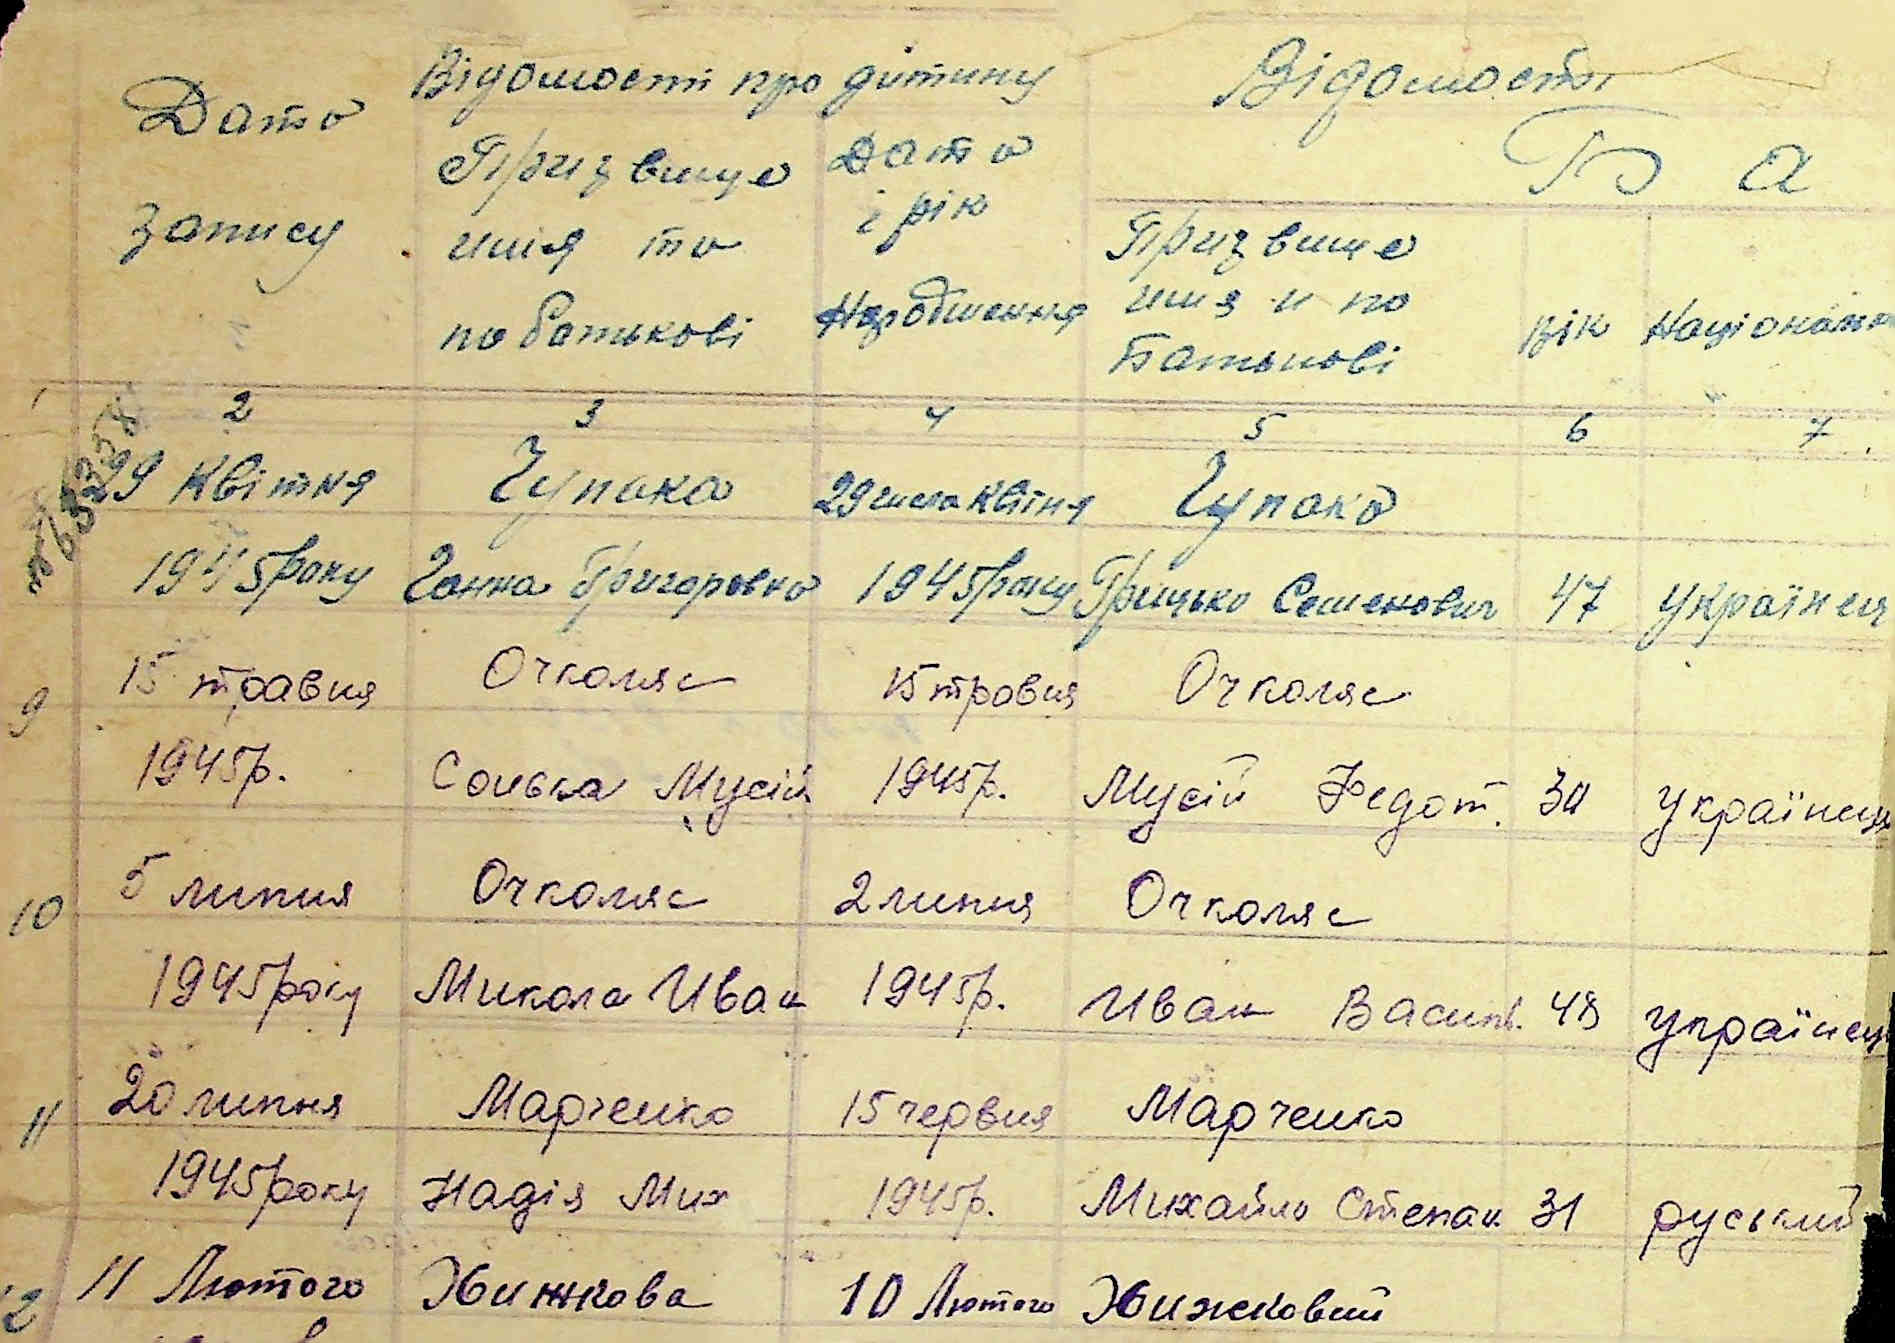 Дата
запису
Відомості про дитину
Призвище
имя та
по батькові
Дата
і рік
Народження
Відомості
Б а
Призвище
имя и по
Батькові
вік
Націонал
1 2 3 4 5 6 7
29 Квітня Чупака 29 числа Квітня Чупака
1945 року Ганна Григоровна 1945 року Грицько Семенович 47 українец
9 15 травня Очколяс 15 травня Очколяс
1945 р. Сонька Мусій 1945 р. Мусій Федот. 30 українец
10 5 липня Очколяс 2 липня Очколяс
1945 року Микола Иван 1945 р. Иван Васил. 48 українец
11 20 липня Марченко 15 червня Марченко
1945 року Надія Мих 1945 р. Михайло Степан 31 руський
12 11 Лютого Хижкова 10 Лютого Хижковий